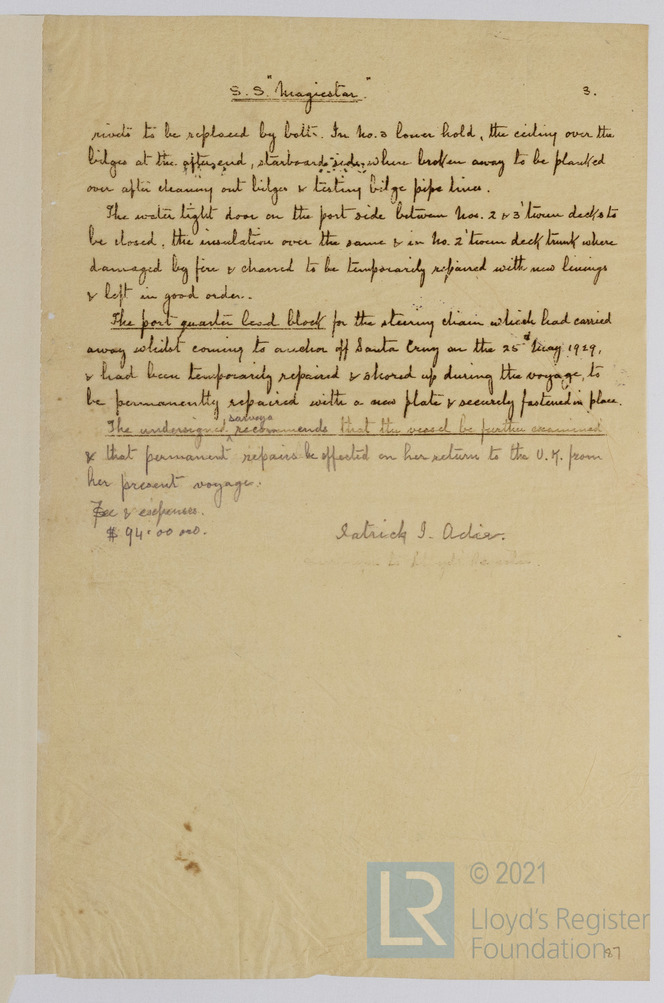 S.S. "Magicstar" 3.
rivets to be replaced by bolts. In No. 3 lower hold, the ceiling over the
bilges at the after end, starboard side, where broken away to be planked
over after cleaning out bilges & testing bilge pipe lines.
The water tight door on the port side between Nos. 2 & 3 'tween decks to
be closed, the insulation over the same & in No. 2 'tween deck trunk where
damaged by fire & charred to be temporarily repaired with new linings
& left in good order.
The port quarter lead block for the steering chain which had carried
away whilst coming to anchor off Santa Cruz on the 25th May 1929,
& had been temporarily repaired & shored up during the voyage, to
be permanently repaired with a new plate & securely fastened in place.
The undersigned recommends that the vessel be further examined
& that permanent repairs be effected on her return to the U.K. from
her present voyage.
Fee & expenses.
$ 94.00
Patrick J. Adie.
© 2021
Lloyd's Register
Foundation
LR